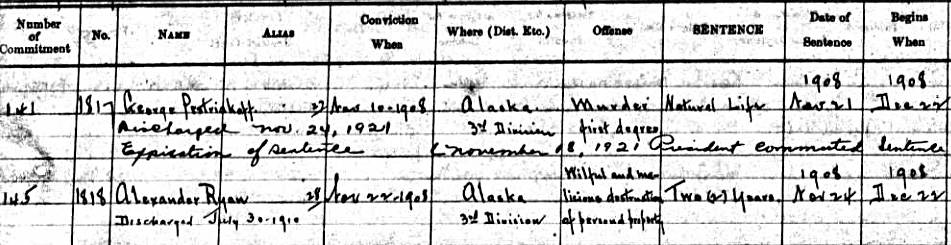 Number of Commitment No. NAME ALIAS Conviction When Where (Dist. Etc.) Offense SENTENCE Date of Sentence Begins When
1908 1908
141 1817 George Pestrikoff 22 Nov 10-1908 Alaska Murder Natural Life Nov 21 Dec 22
Discharged Nov. 24, 1921 3rd Division first degree
Expiration of sentence November 18, 1921 President commuted sentence
Wilful and ma- 1908 1908
145 1818 Alexander Ryan 28 Nov 22-1908 Alaska licious destruction Two (2) Years. Nov 24 Dec 22
Discharged July 30-1910 3rd Division of personal property